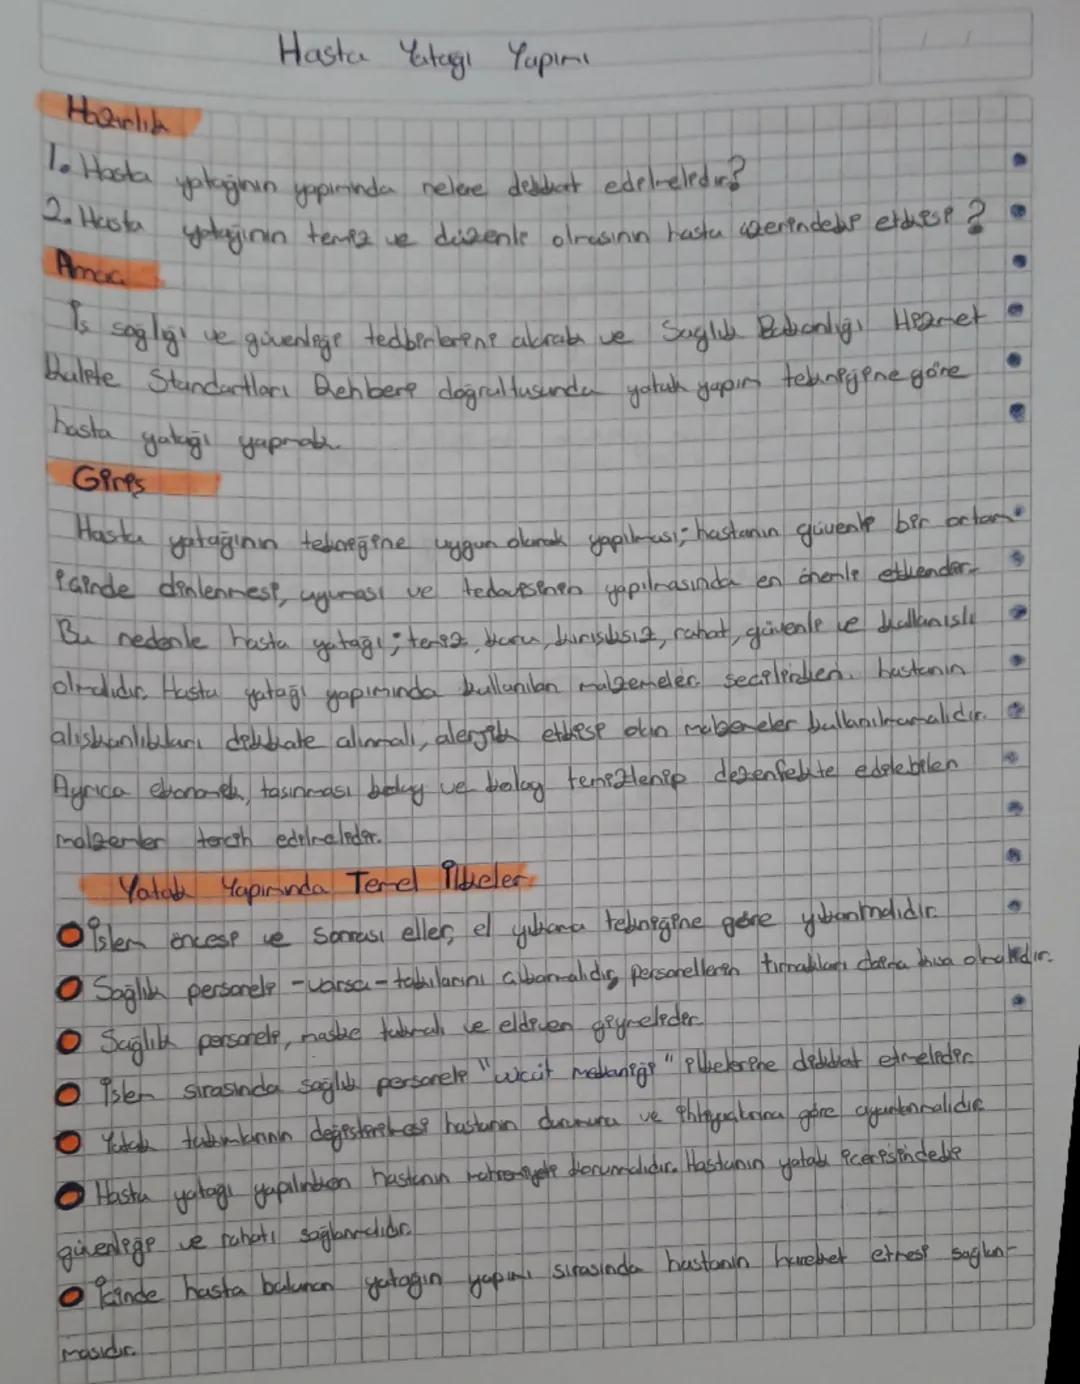 Hasta Yatağı Yapımı
Hazırlık
1. Hasta yatağının yapımında nelere dikkat edilmelidir?
2. Hasta yatağının temiz ve düzenli olmasının hasta üzerindeki etkisi?
Amaç
İş sağlığı ve güvenliği tedbirlerini alarak ve Sağlık Bakanlığı Hizmet
Kalite Standartları Rehberi doğrultusunda yatak yapım tekniğine göre
hasta yatağı yapmak.
Giriş
Hasta yatağının tekniğine uygun olarak yapılması; hastanın güvenli bir ortam
içinde dinlenmesi, uyuması ve tedavisinin yapılmasında en önemli etkendir.
Bu nedenle hasta yatağı; temiz, kuru, kırışıksız, rahat, güvenli ve kullanışlı
olmalıdır. Hasta yatağı yapımında kullanılan malzemeler seçilirken hastanın
alışkanlıkları dikkate alınmalı, alerjik etkisi olan malzemeler kullanılmamalıdır.
Ayrıca ekonomik, taşınması kolay ve kolay temizlenip dezenfekte edilebilen
malzemler tercih edilmelidir.
Yatak Yapımında Temel İlkeler
İşlem öncesi ve sonrası eller, el yıkama tekniğine göre yıkanmalıdır.
Sağlık personeli -varsa- takılarını çıkarmalıdır, personellerin tırnakları daima kısa olmalıdır.
Sağlık personeli, maske takmalı ve eldiven giymelidir.
İşlem sırasında sağlık personeli "vücut mekaniği" ilkelerine dikkat etmelidir.
Yatak takımlarının değiştirilmesi hastanın durumuna ve ihtiyaçlarına göre ayarlanmalıdır.
Hasta yatağı yapılırken hastanın mahremiyeti korunmalıdır. Hastanın yatak içerisindeki
güvenliği ve rahatı sağlanmalıdır.
İçinde hasta bulunan yatağın yapımı sırasında hastanın hareket etmesi sağlan-
masıdır.